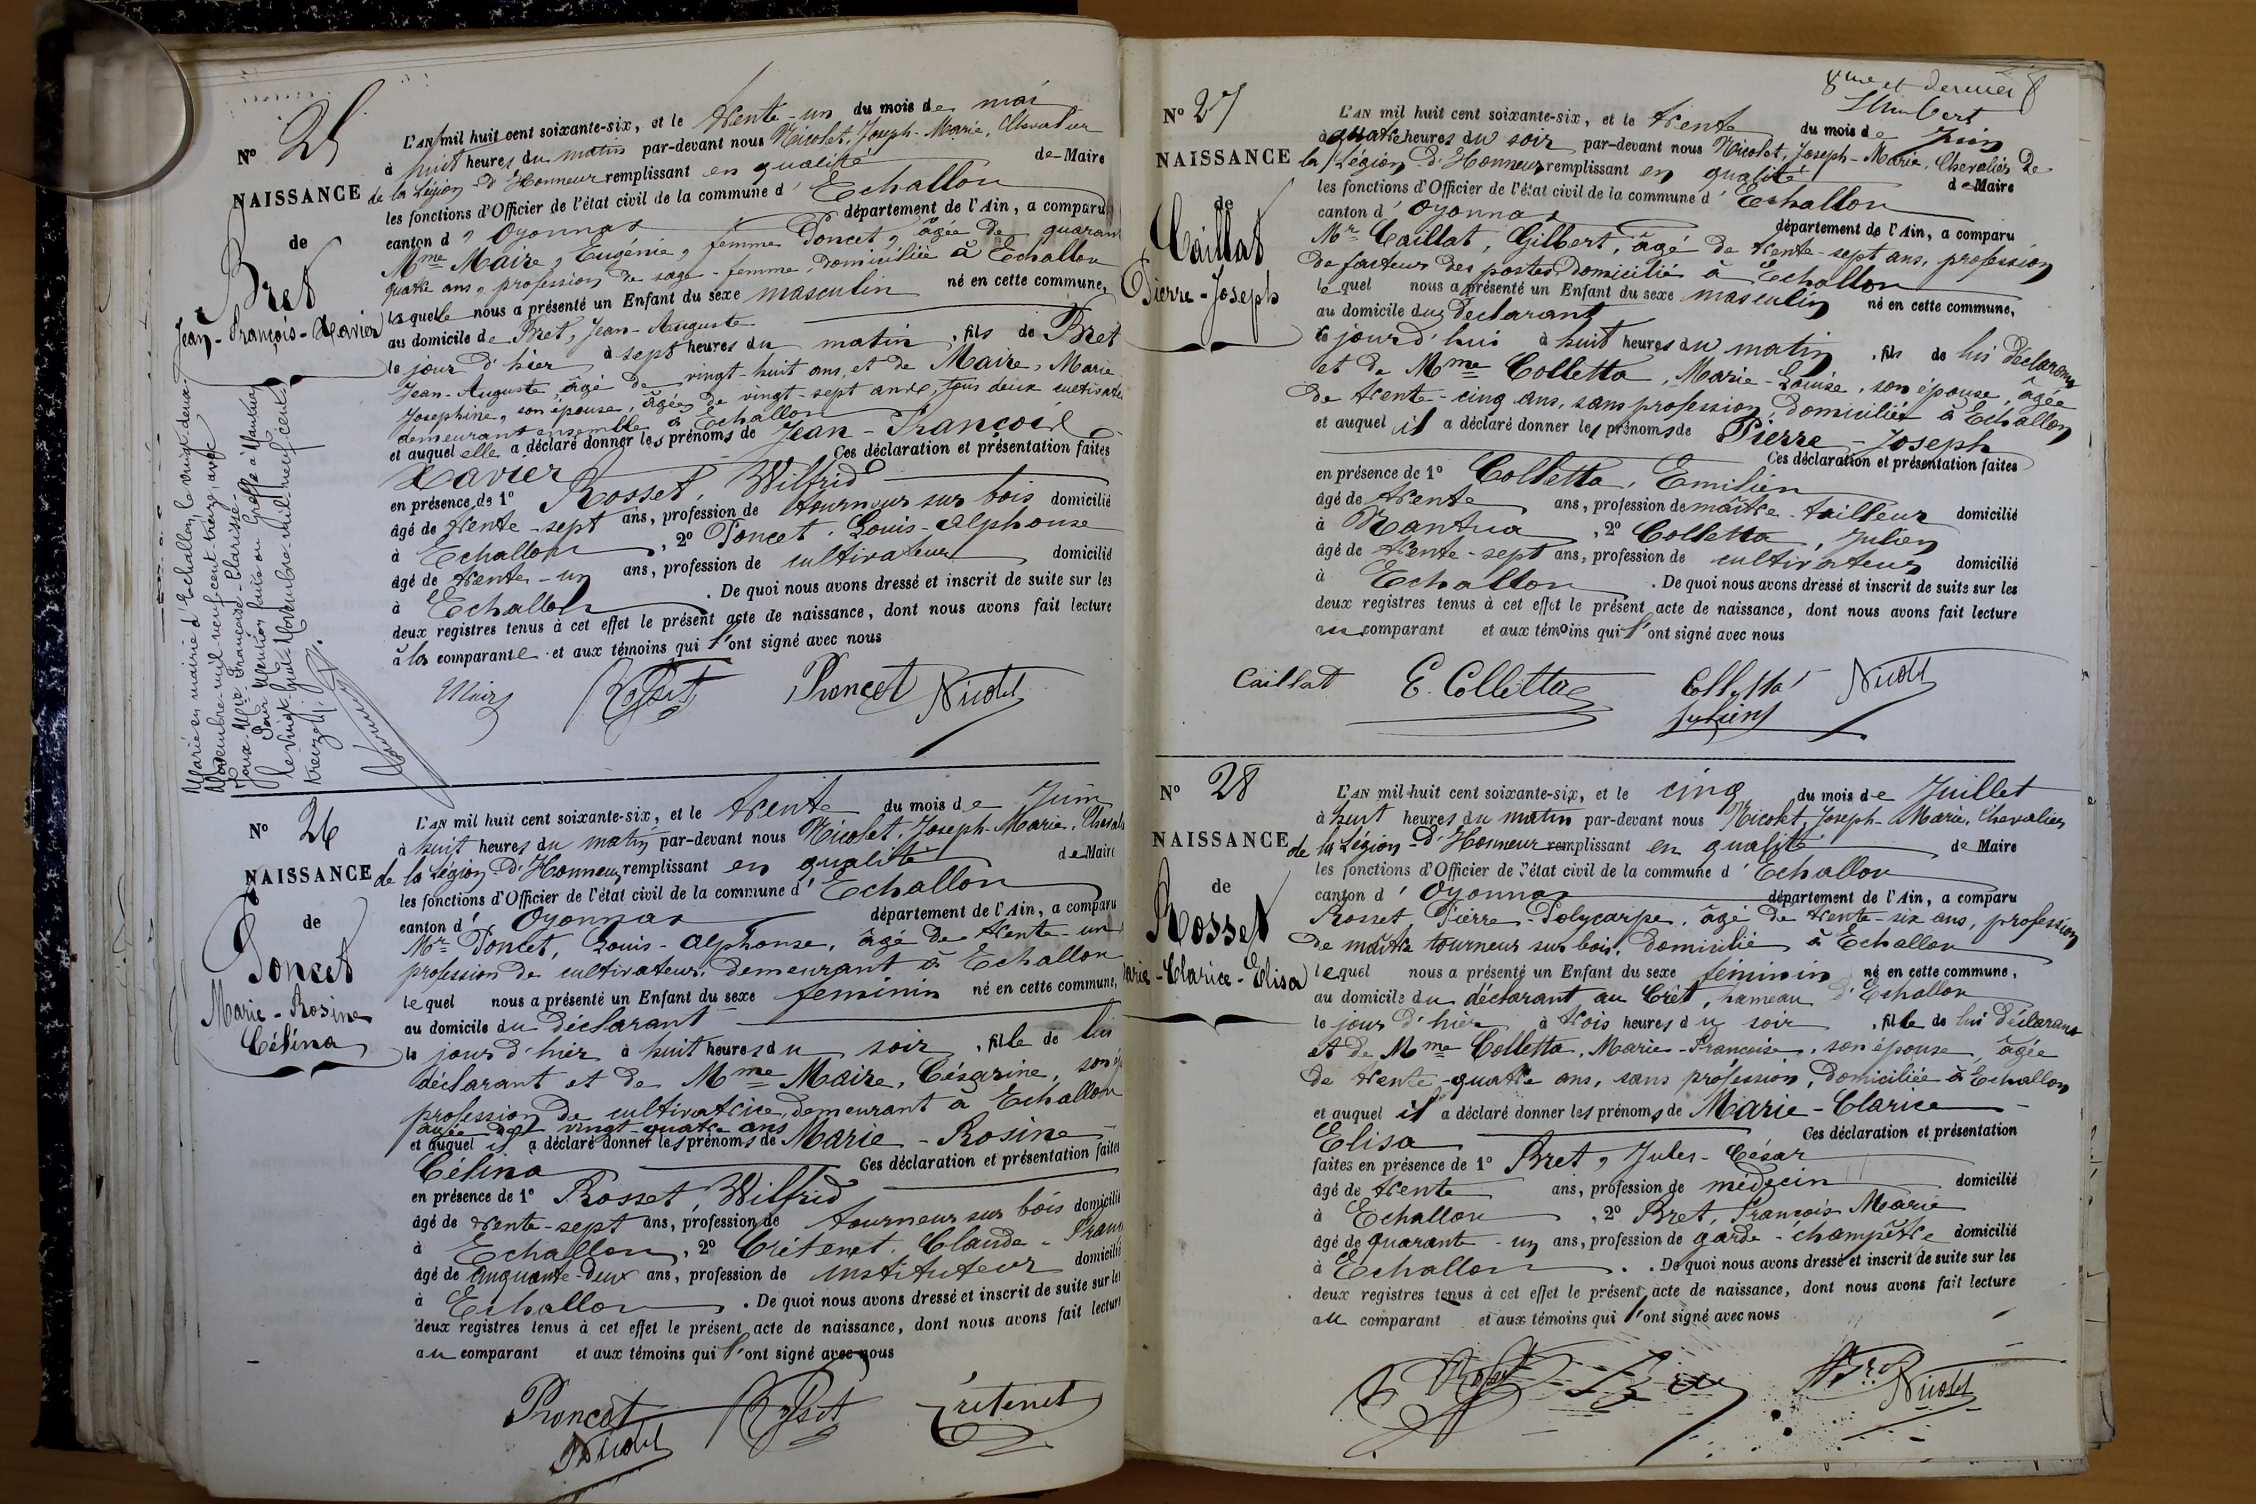 N° 25
NAISSANCE
de
Bret
Jean-François-Xavier
L'AN mil huit cent soixante-six, et le trente-un du mois de mai
à huit heures du matin par-devant nous Nicolet, Joseph-Marie, Chevalier
de la Légion d'Honneur remplissant en qualité de Maire
les fonctions d'Officier de l'état civil de la commune d'Echallon
canton d'Oyonnax département de l'Ain, a comparu
Mme Maire, Eugénie, femme Poncet, âgée de quarante
quatre ans, profession de sage-femme, domiciliée à Echallon
laquelle nous a présenté un Enfant du sexe masculin né en cette commune,
au domicile de Bret, Jean-Auguste
le jour d'hier à sept heures du matin, fils de Bret
Jean-Auguste, âgé de vingt-huit ans, et de Maire, Marie
Josephine, son épouse, âgée de vingt-sept ans, tous deux cultivateurs
demeurant ensemble à Echallon
et auquel elle a déclaré donner les prénoms de Jean-François
Xavier Ces déclaration et présentation faites
en présence de 1° Rosset, Wilfrid
âgé de trente-sept ans, profession de tourneur sur bois domicilié
à Echallon, 2° Poncet, Louis-Alphonse
âgé de trente-un ans, profession de cultivateur domicilié
à Echallon. De quoi nous avons dressé et inscrit de suite sur les
deux registres tenus à cet effet le présent acte de naissance, dont nous avons fait lecture
à la comparante et aux témoins qui l'ont signé avec nous
Maire Rosset Poncet Nicolet
Marié en mairie d'Echallon, le vingt-deux
Novembre mil neuf cent treize, avec
Marie-Françoise-Clarisse
Pour Mention faite au Greffe à Nantua
le vingt-huit Novembre mil neuf cent
treize
N° 26
NAISSANCE
de
Poncet
Marie-Rosine
Célina
L'AN mil huit cent soixante-six, et le trente du mois de Juin
à huit heures du matin par-devant nous Nicolet, Joseph-Marie, Chevalier
de la Légion d'Honneur remplissant en qualité de Maire
les fonctions d'Officier de l'état civil de la commune d'Echallon
canton d'Oyonnax département de l'Ain, a comparu
Mr Poncet, Louis-Alphonse, âgé de trente-un
profession de cultivateur, demeurant à Echallon
lequel nous a présenté un Enfant du sexe feminin né en cette commune,
au domicile du déclarant
le jour d'hier à huit heures du soir, fille de lui
déclarant et de Mme Maire, Césarine, son
profession de cultivatrice, demeurant à Echallon
âgée de vingt-quatre ans
et auquel il a déclaré donner les prénoms de Marie-Rosine
Célina Ces déclaration et présentation faites
en présence de 1° Rosset Wilfrid
âgé de trente-sept ans, profession de tourneur sur bois domicilié
à Echallon, 2° Crétenet, Claude-
âgé de cinquante-deux ans, profession de instituteur domicilié
à Echallon. De quoi nous avons dressé et inscrit de suite sur les
deux registres tenus à cet effet le présent acte de naissance, dont nous avons fait lecture
au comparant et aux témoins qui l'ont signé avec nous
Poncet Rosset Crétenet
Nicolet
8me et dernier
Humbert
N° 27
NAISSANCE
de
Caillat
Pierre-Joseph
L'AN mil huit cent soixante-six, et le trente du mois de Juin
à quatre heures du soir par-devant nous Nicolet, Joseph-Marie, Chevalier de
la Légion d'Honneur remplissant en qualité de Maire
les fonctions d'Officier de l'état civil de la commune d'Echallon
canton d'Oyonnax département de l'Ain, a comparu
Mr Caillat, Gilbert, âgé de trente-sept ans, profession
de facteur des postes, domicilié à Echallon
lequel nous a présenté un Enfant du sexe masculin né en cette commune,
au domicile du déclarant
ce jourd'hui à huit heures du matin, fils de lui déclarant
et de Mme Colletta, Marie-Louise, son épouse, âgée
de trente-cinq ans, sans profession, domiciliée à Echallon
et auquel il a déclaré donner les prénoms de Pierre-Joseph
Ces déclaration et présentation faites
en présence de 1° Colletta, Emilien
âgé de trente ans, profession de maître-tailleur domicilié
à Nantua, 2° Colletta, Julien
âgé de trente-sept ans, profession de cultivateur domicilié
à Echallon. De quoi nous avons dressé et inscrit de suite sur les
deux registres tenus à cet effet le présent acte de naissance, dont nous avons fait lecture
au comparant et aux témoins qui l'ont signé avec nous
Caillat E. Colletta Colletta Nicolet
Julien
N° 28
NAISSANCE
de
Rosset
Marie-Clarice-Elisa
L'AN mil huit cent soixante-six, et le cinq du mois de Juillet
à huit heures du matin par-devant nous Nicolet, Joseph-Marie, Chevalier
de la Légion d'Honneur remplissant en qualité de Maire
les fonctions d'Officier de l'état civil de la commune d'Echallon
canton d'Oyonnax département de l'Ain, a comparu
Rosset, Pierre-Polycarpe, âgé de trente-six ans, profession
de maître tourneur sur bois, domicilié à Echallon
lequel nous a présenté un Enfant du sexe féminin né en cette commune,
au domicile du déclarant, au Crêt, hameau d'Echallon
le jour d'hier à trois heures du soir, fille de lui déclarant
et de Mme Colletta, Marie-Françoise, son épouse, âgée
de trente-quatre ans, sans profession, domiciliée à Echallon
et auquel il a déclaré donner les prénoms de Marie-Clarice
Elisa Ces déclaration et présentation
faites en présence de 1° Bret, Jules-César
âgé de trente ans, profession de médecin domicilié
à Echallon, 2° Bret, François Marie
âgé de quarante-un ans, profession de garde-champêtre domicilié
à Echallon. De quoi nous avons dressé et inscrit de suite sur les
deux registres tenus à cet effet le présent acte de naissance, dont nous avons fait lecture
au comparant et aux témoins qui l'ont signé avec nous
Rosset Bret Nicolet